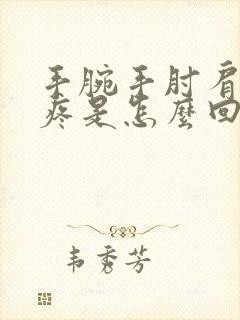 手腕手肘肩
疼是怎麼回
韦秀芳